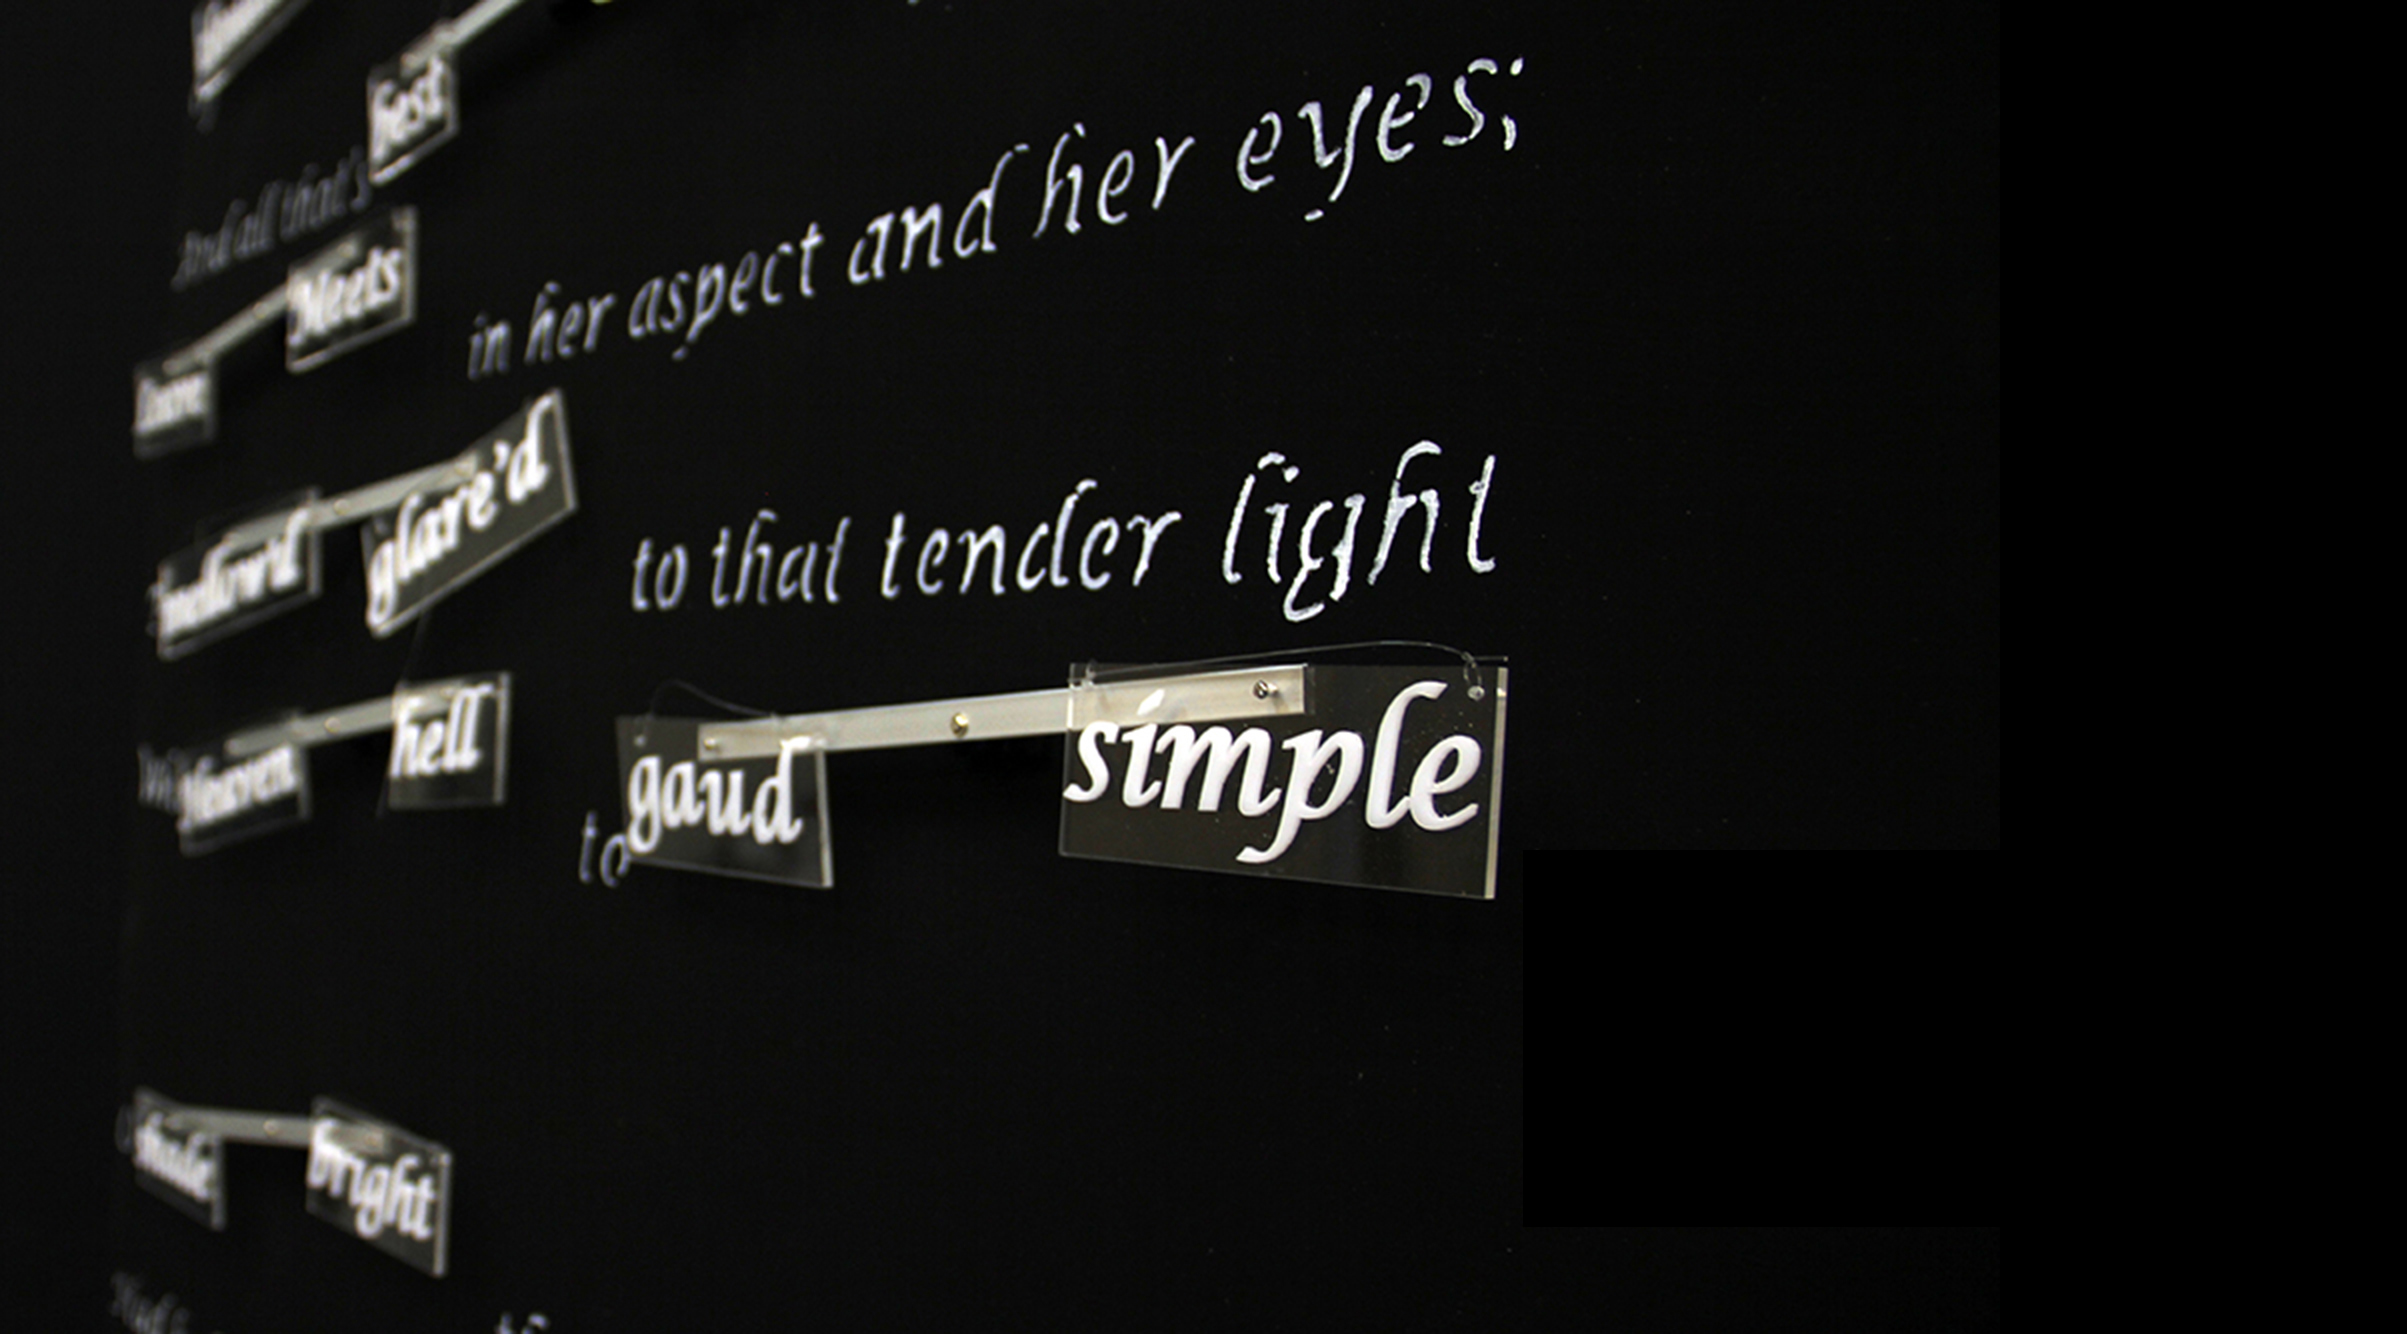 best
And all that's
Meets in her aspect and her eyes;
glare'd to that tender light
Heaven hell to gaud simple
shade bright